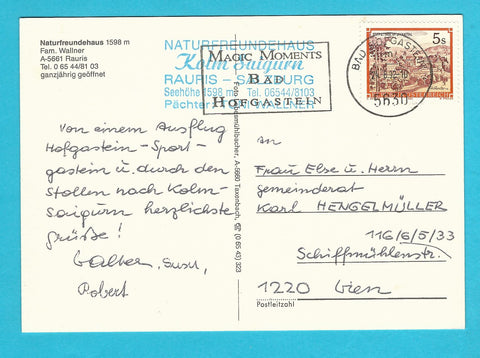 Naturfreundehaus 1598 m
Fam. Wallner
A-5661 Rauris
Tel. 0 65 44/81 03
ganzjährig geöffnet
NATURFREUNDEHAUS
Kolm Saigurn
RAURIS - SALZBURG
Seehöhe 1598 m Tel. 06544/8103
Pächter: FAM. WALLNER
MAGIC MOMENTS
BAD
HOFGASTEIN
BAD HOFGASTEIN
5630
5s
Von einem Ausflug
Hofgastein - Sport-
gastein u. durch den
Stollen nach Kolm-
saigurn herzlichste
Grüße!
Walter, Susi,
Robert
A-5660 Taxenbach, (0 65 43) 323
Frau Else u. Herrn
Gemeinderat
Karl HENGELMÜLLER
116/6/5/33
Schiffmühlenstr.
1220 Wien
Postleitzahl